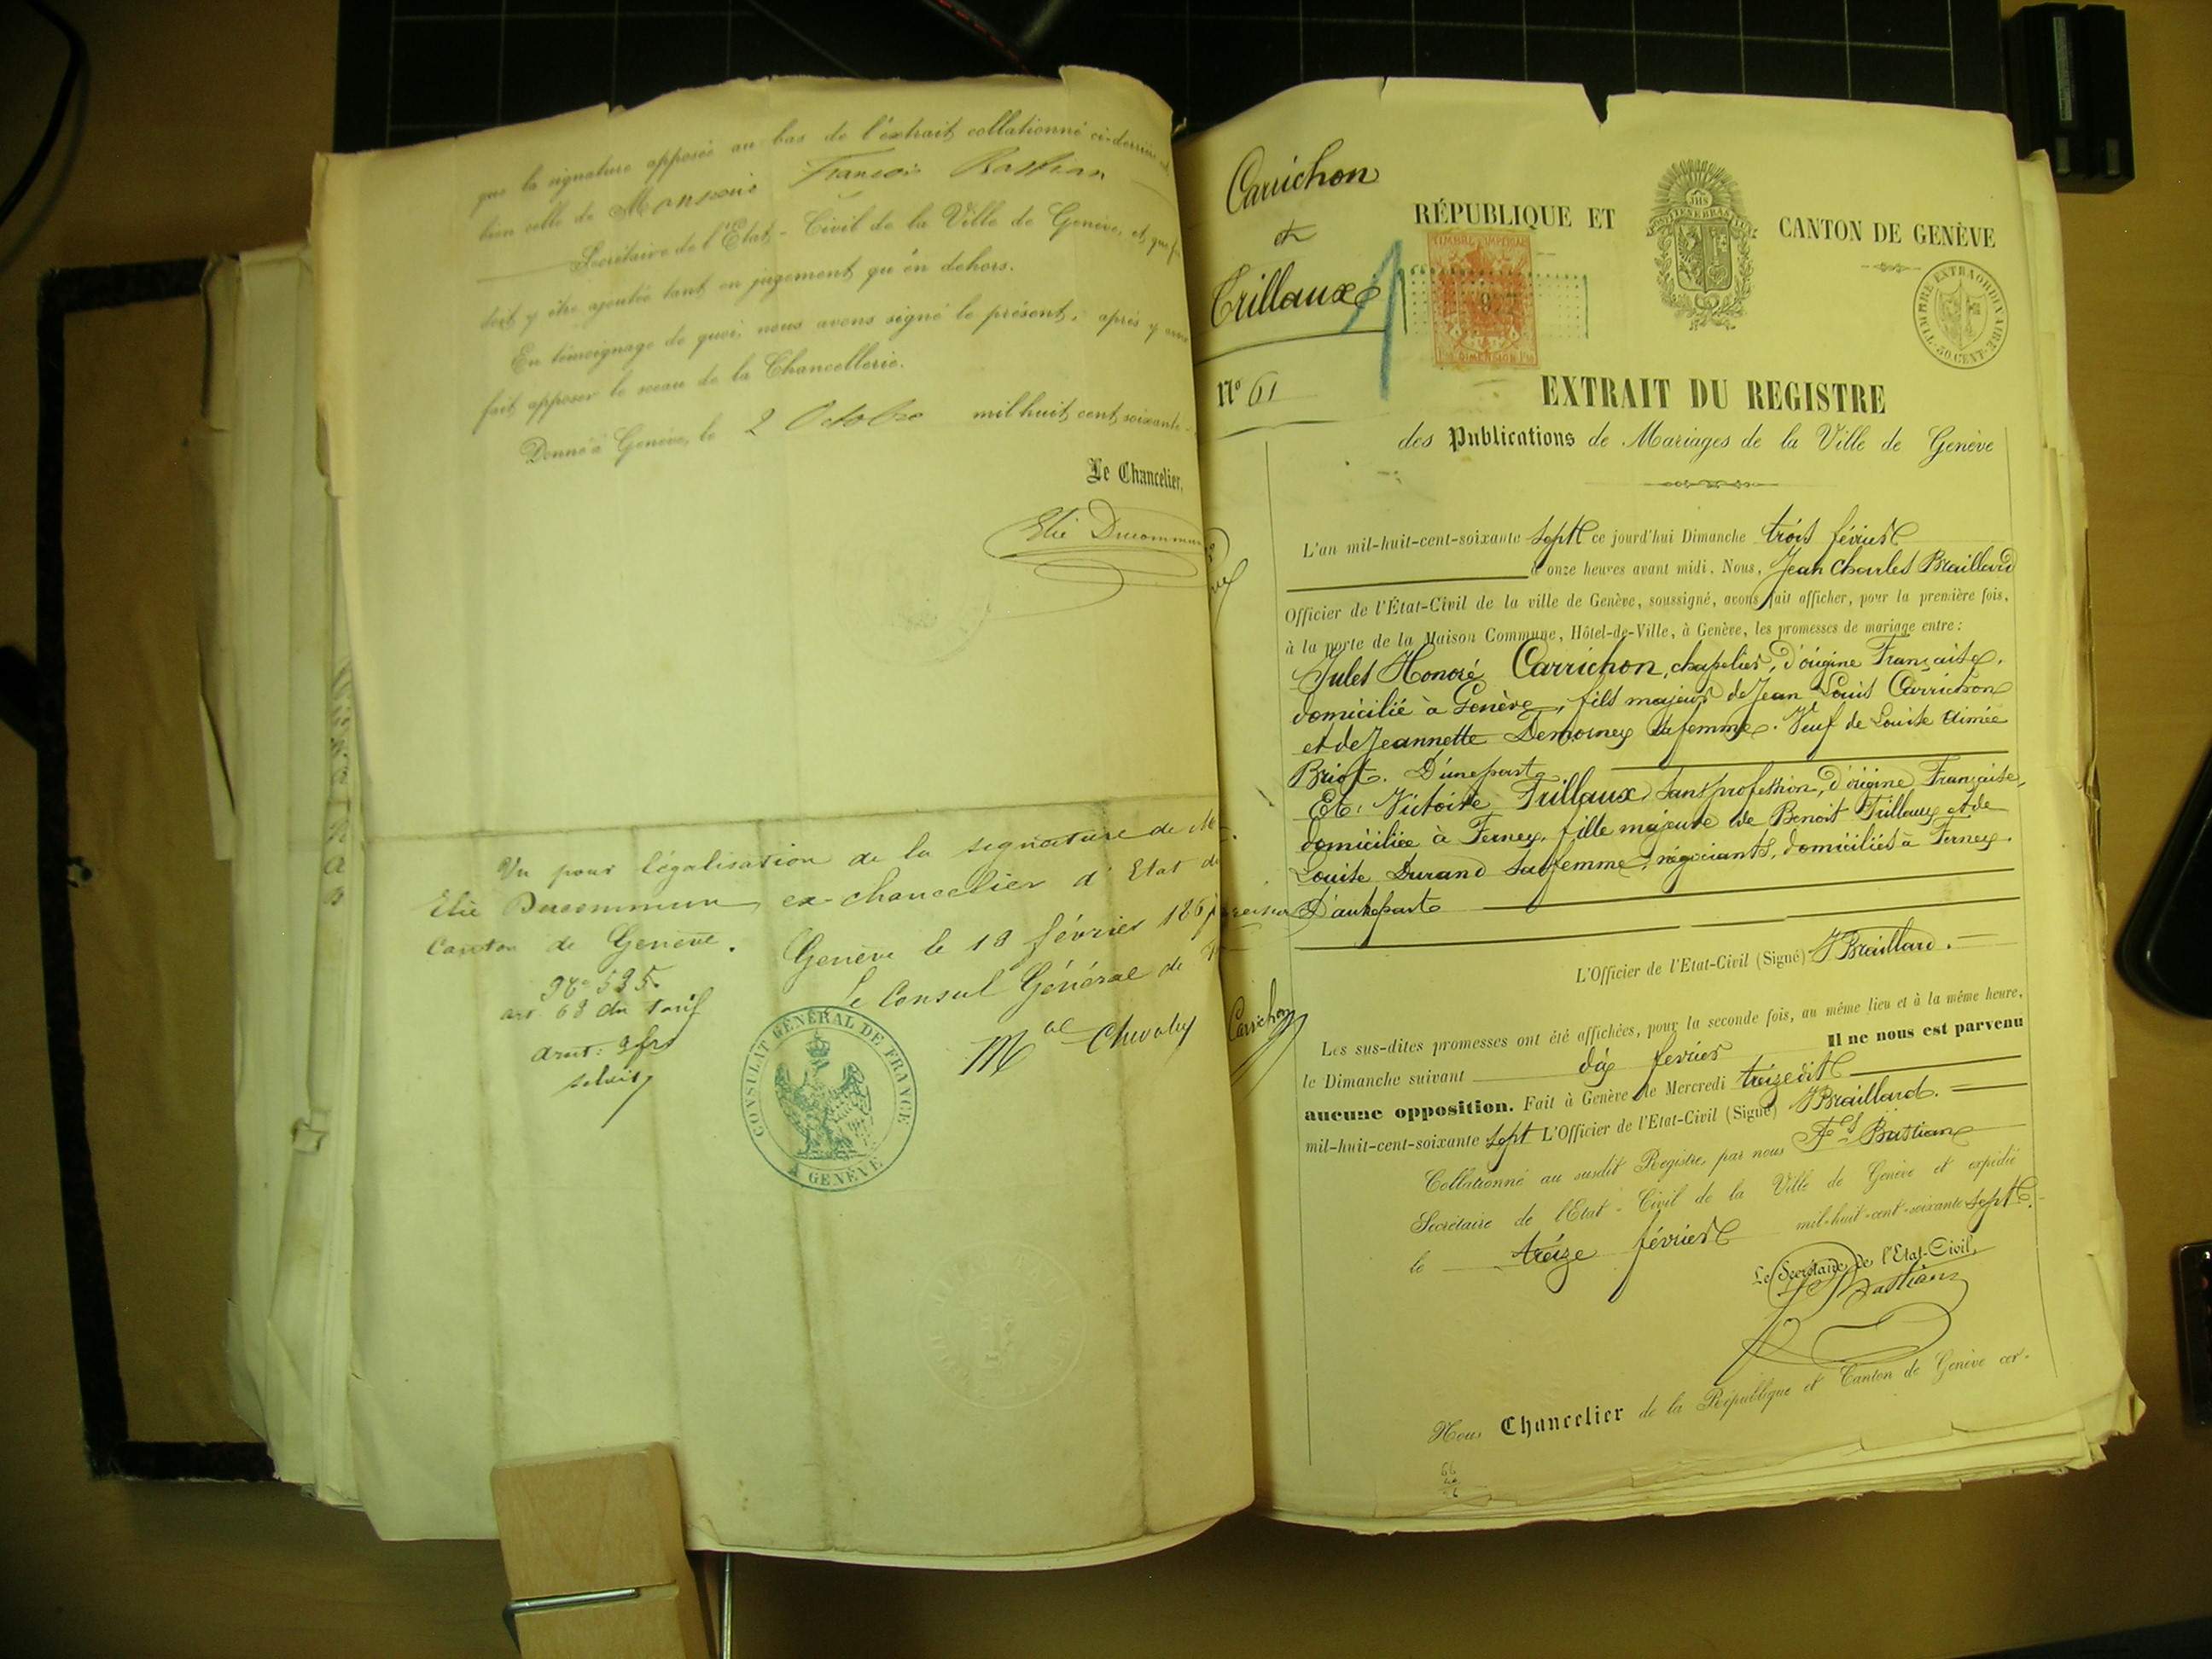 que la signature apposée au bas de l'extrait collationné ci-derrière est
bien celle de Monsieur François Bastian
Secrétaire de l'Etat-Civil de la Ville de Genève, et que foi
doit y être ajoutée tant en jugement qu'en dehors.
En témoignage de quoi, nous avons signé le présent, après y avoir
fait apposer le sceau de la Chancellerie.
Donné à Genève, le 2 Octobre mil huit cent soixante-
Le Chancelier,
Elie Ducommun
Vu pour légalisation de la signature de M
Elie Ducommun ex-chancelier d'Etat du
Canton de Genève.
Genève le 19 février 186
Le Consul Général de
No 535.
art 68 du Tarif
droit: 9 frs
CONSULAT GÉNÉRAL DE FRANCE
A GENÈVE
Carrichon
et
Trillaux
No 61
RÉPUBLIQUE ET CANTON DE GENÈVE
TIMBRE IMPÉRIAL
DIMENSION
POST TENEBRAS LUX
JHS
TIMBRE EXTRAORDINAIRE
50 CENT.
EXTRAIT DU REGISTRE
des Publications de Mariages de la Ville de Genève
L'an mil-huit-cent-soixante sept ce jourd'hui Dimanche trois février
à onze heures avant midi. Nous, Jean Charles Braillard
Officier de l'État-Civil de la ville de Genève, soussigné, avons fait afficher, pour la première fois,
à la porte de la Maison Commune, Hôtel-de-Ville, à Genève, les promesses de mariage entre:
Jules Honoré Carrichon, chapelier, d'origine Française,
domicilié à Genève, fils majeur de Jean Louis Carrichon
et de Jeannette Demorney sa femme. Veuf de Louise Aimée
Briot. D'une part
Et: Victoire Trillaux, sans profession, d'origine Française,
domiciliée à Ferney, fille majeure de Benoit Trillaux et de
Louise Durand sa femme, négociants, domiciliés à Ferney.
D'autre part
L'Officier de l'Etat-Civil (Signé) J Braillard.
Carrichon
Les sus-dites promesses ont été affichées, pour la seconde fois, au même lieu et à la même heure,
le Dimanche suivant dix février Il ne nous est parvenu
aucune opposition. Fait à Genève le Mercredi treize dit
mil-huit-cent-soixante sept L'Officier de l'Etat-Civil (Signé) J Braillard.
Collationné au susdit Registre, par nous Fçs Bastian
Secrétaire de l'Etat-Civil de la Ville de Genève et expédié
le treize février mil-huit-cent-soixante sept.
Le Secrétaire de l'Etat-Civil,
Bastian
Nous Chancelier de la République et Canton de Genève cer-